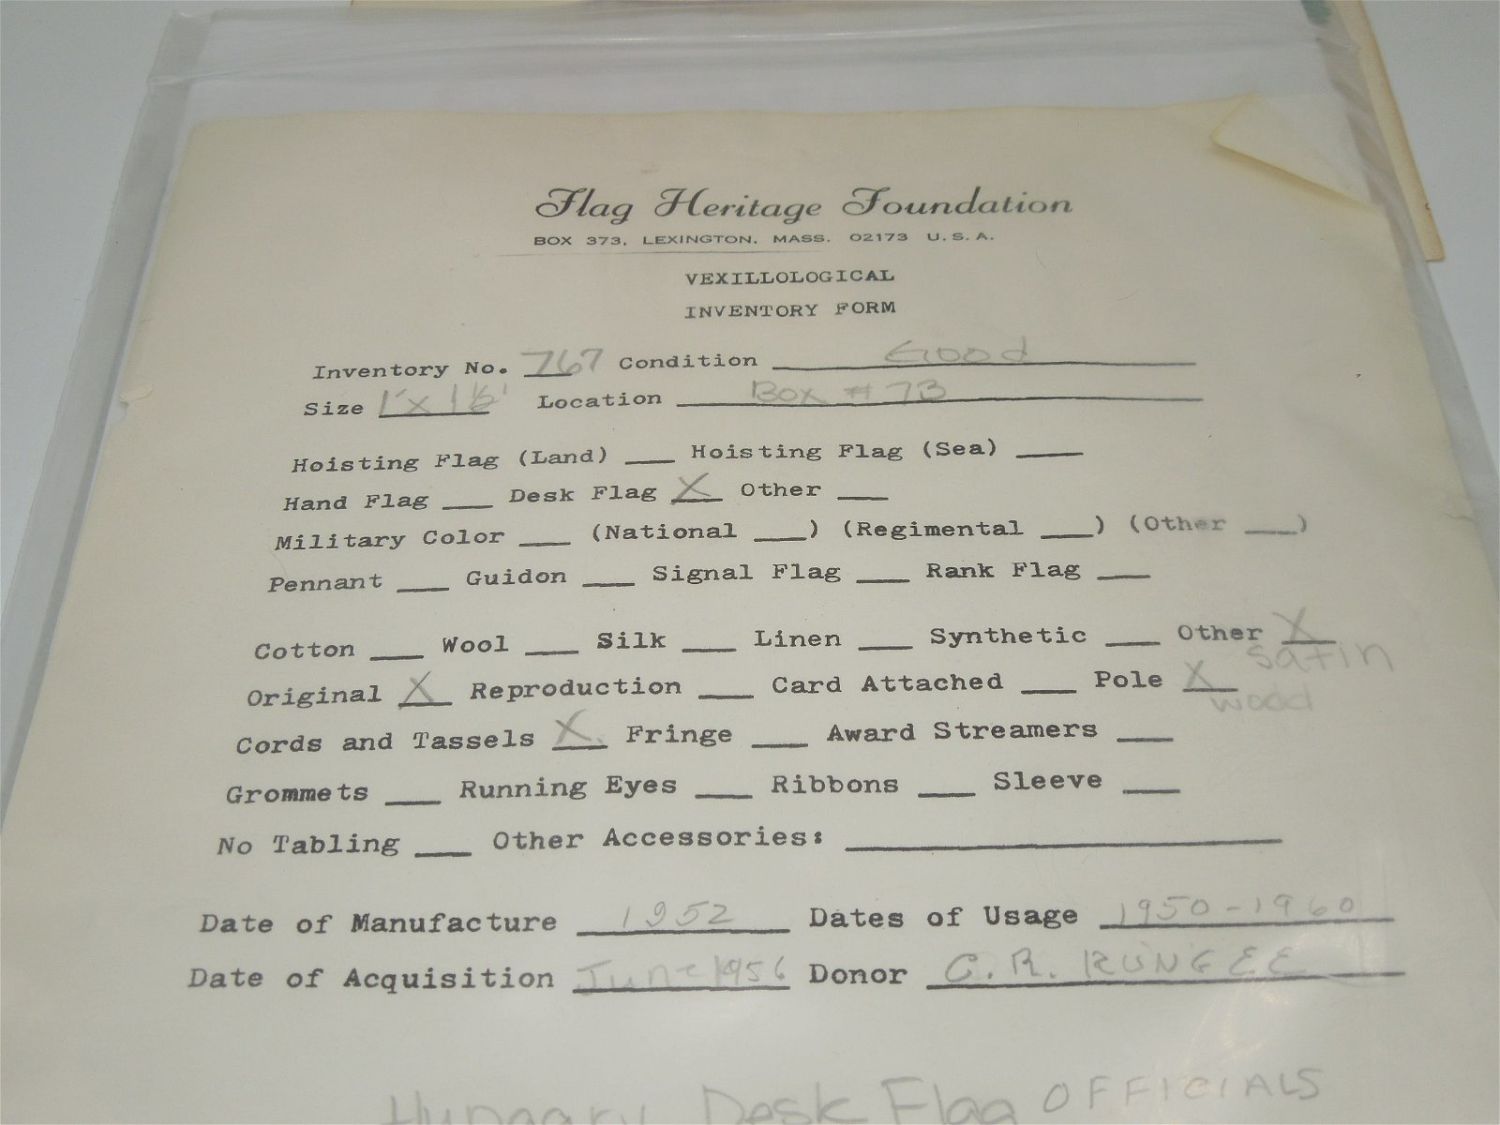 Flag Heritage Foundation
BOX 373, LEXINGTON, MASS. 02173 U.S.A.
VEXILLOLOGICAL
INVENTORY FORM
Inventory No. 767 Condition Good
Size 1' x 1½' Location Box # 73
Hoisting Flag (Land) ___ Hoisting Flag (Sea) ___
Hand Flag ___ Desk Flag X Other ___
Military Color ___ (National ___) (Regimental ___) (Other ___)
Pennant ___ Guidon ___ Signal Flag ___ Rank Flag ___
Cotton ___ Wool ___ Silk ___ Linen ___ Synthetic ___ Other X
satin
Original X Reproduction ___ Card Attached ___ Pole X
wood
Cords and Tassels X Fringe ___ Award Streamers ___
Grommets ___ Running Eyes ___ Ribbons ___ Sleeve ___
No Tabling ___ Other Accessories: ___
Date of Manufacture 1952 Dates of Usage 1950-1960
Date of Acquisition June 1956 Donor C. R. RUNGEE
Hungary Desk Flag OFFICIALS